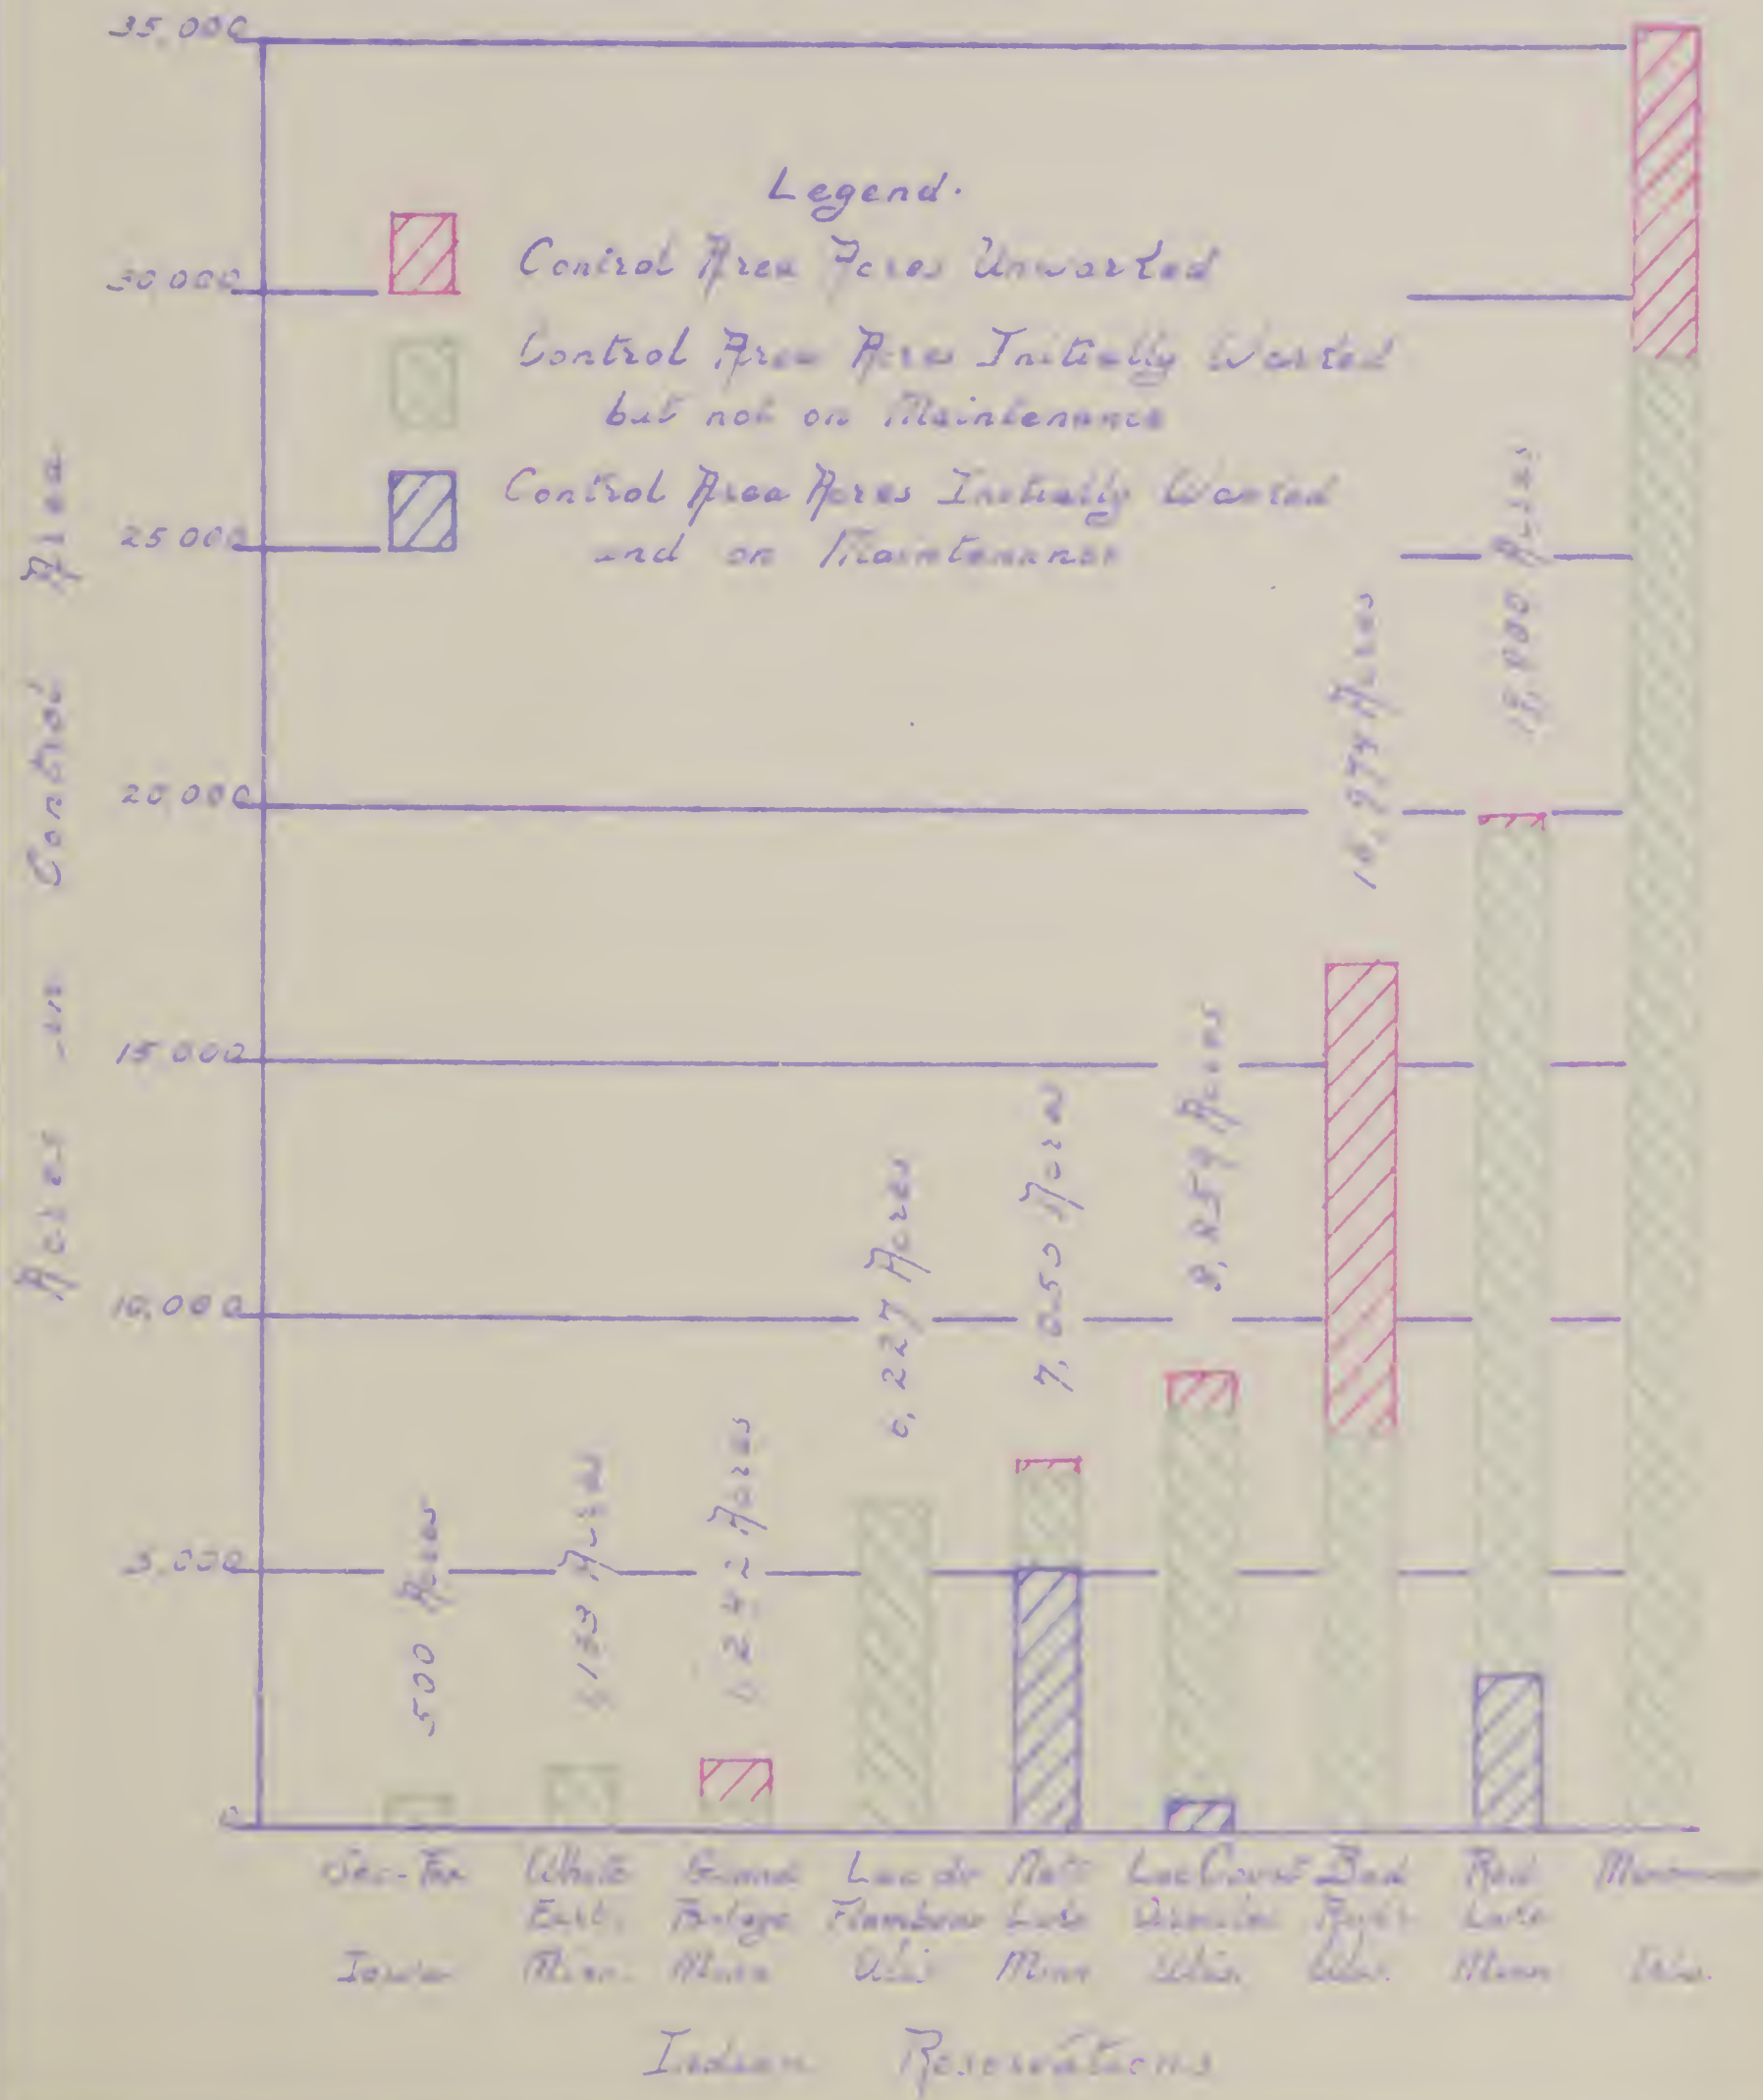 35,000
30 000
25 000
20,000
15 000
10,000
5,000
0
Acres in Control Area
Legend.
Control Area Acres Unworked
Control Area Acres Initially Worked
but not on Maintenance
Control Area Acres Initially Worked
and on Maintenance
500 Acres
1,133 Acres
1,242 Acres
6,227 Acres
7,050 Acres
8,859 Acres
16,974 Acres
Acres
Sac-Fox
Iowa
White
Earth
Minn.
Grand
Portage
Minn
Lac du
Flambeau
Wis
Nett
Lake
Minn
Lac Court
Wis.
Bad
River
Wis.
Red
Lake
Minn
Wis.
Indian Reservations